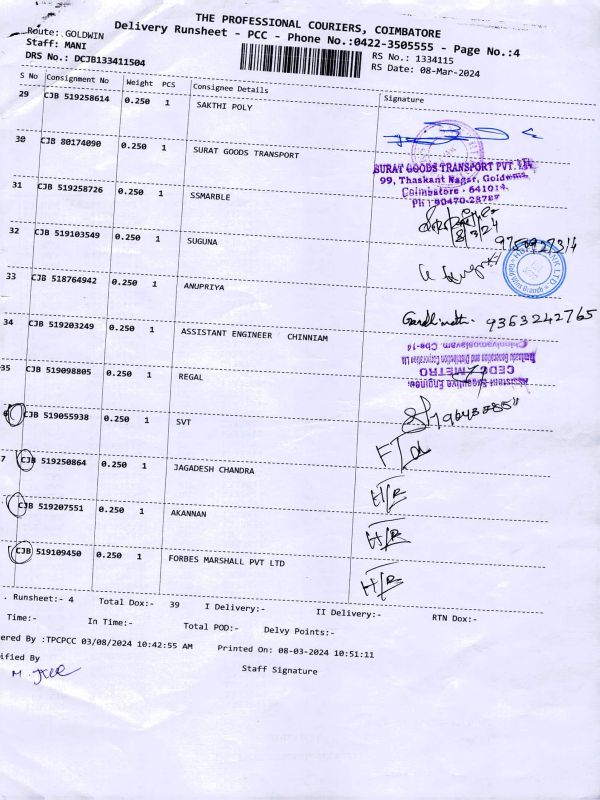 THE PROFESSIONAL COURIERS, COIMBATORE
Delivery Runsheet - PCC - Phone No.:0422-3505555 - Page No.:4
Route: GOLDWIN
Staff: MANI
RS No.: 1334115
DRS No.: DCJB133411504
RS Date: 08-Mar-2024
S No Consignment No Weight PCS Consignee Details Signature
29 CJB 519258614 0.250 1 SAKTHI POLY
30 CJB 80174090 0.250 1 SURAT GOODS TRANSPORT
SURAT GOODS TRANSPORT PVT. LTD
99, Thaskant Nagar, Goldwins,
Coimbatore - 641014.
Ph : 90470-28787
31 CJB 519258726 0.250 1 SSMARBLE
8/3/24
32 CJB 519103549 0.250 1 SUGUNA
33 CJB 518764942 0.250 1 ANUPRIYA
9363242765
34 CJB 519203249 0.250 1 ASSISTANT ENGINEER CHINNIAM
Assistant Executive Engineer
CEDC METRO
35 CJB 519098805 0.250 1 REGAL
6 CJB 519055938 0.250 1 SVT
7 CJB 519250864 0.250 1 JAGADESH CHANDRA
H/R
CJB 519207551 0.250 1 AKANNAN
H/R
CJB 519109450 0.250 1 FORBES MARSHALL PVT LTD
H/R
. Runsheet:- 4 Total Dox:- 39 I Delivery:- II Delivery:- RTN Dox:-
Time:- In Time:- Total POD:- Delvy Points:-
ered By :TPCPCC 03/08/2024 10:42:55 AM Printed On: 08-03-2024 10:51:11
ified By
Staff Signature